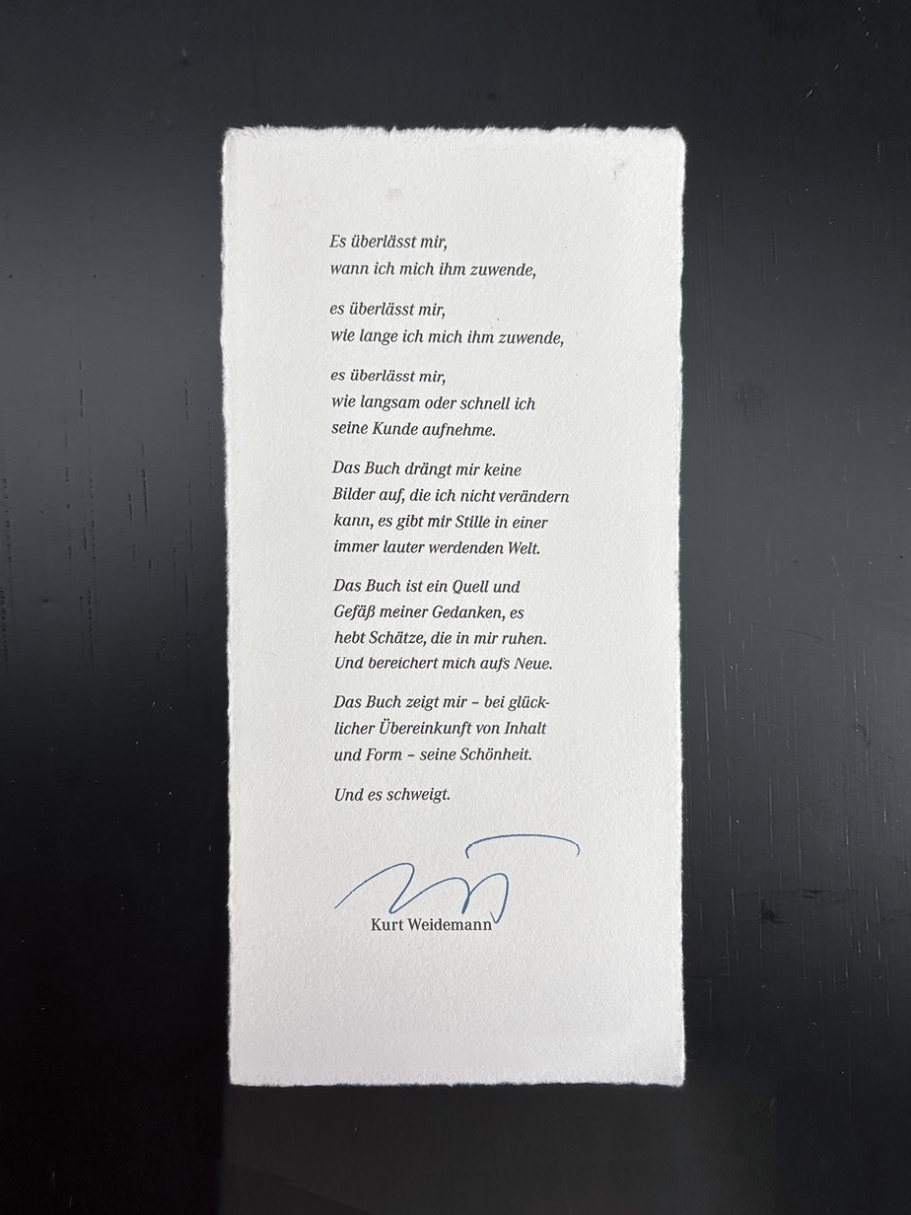 Es überlässt mir,
wann ich mich ihm zuwende,
es überlässt mir,
wie lange ich mich ihm zuwende,
es überlässt mir,
wie langsam oder schnell ich
seine Kunde aufnehme.
Das Buch drängt mir keine
Bilder auf, die ich nicht verändern
kann, es gibt mir Stille in einer
immer lauter werdenden Welt.
Das Buch ist ein Quell und
Gefäß meiner Gedanken, es
hebt Schätze, die in mir ruhen.
Und bereichert mich aufs Neue.
Das Buch zeigt mir – bei glück-
licher Übereinkunft von Inhalt
und Form – seine Schönheit.
Und es schweigt.
Kurt Weidemann